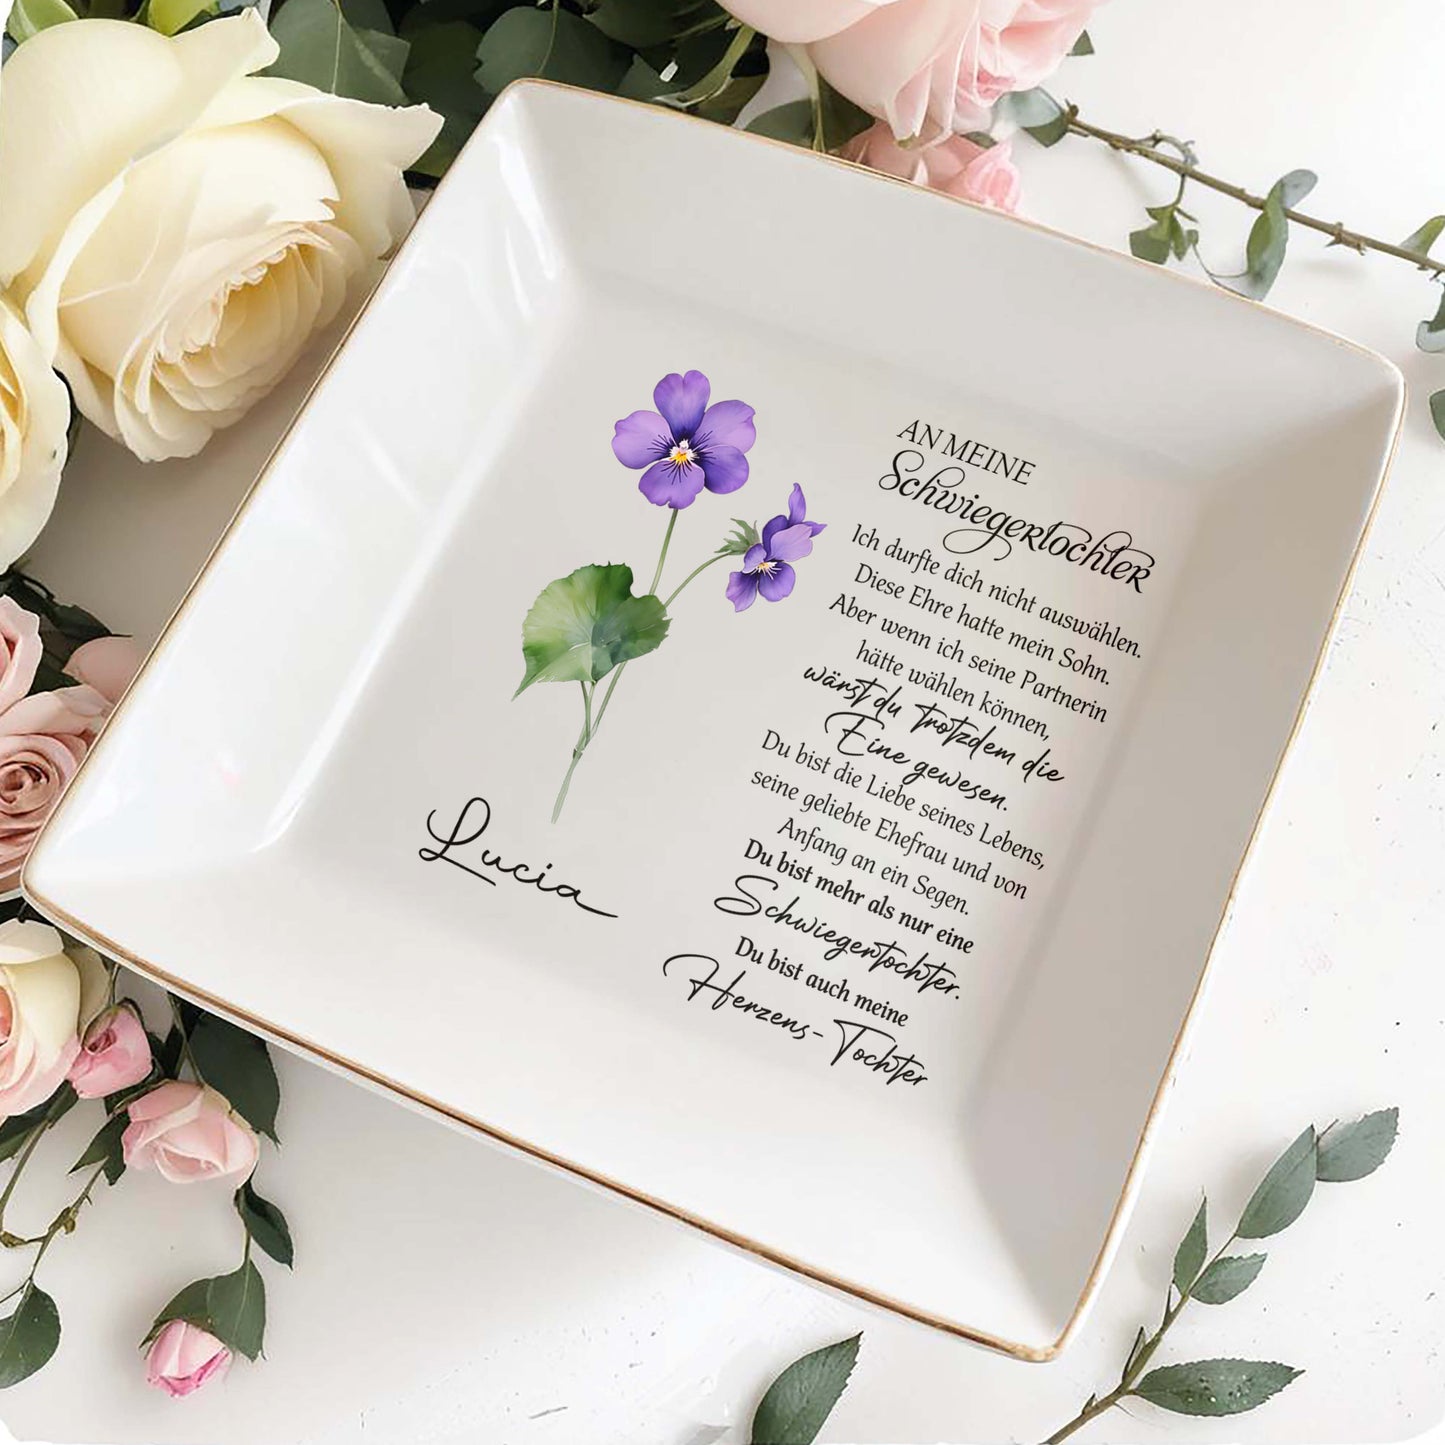 AN MEINE
Schwiegertochter
Ich durfte dich nicht auswählen.
Diese Ehre hatte mein Sohn.
Aber wenn ich seine Partnerin
hätte wählen können,
wärst du trotzdem die
Eine gewesen.
Du bist die Liebe seines Lebens,
seine geliebte Ehefrau und von
Anfang an ein Segen.
Du bist mehr als nur eine
Schwiegertochter.
Du bist auch meine
Herzens-Tochter
Lucia